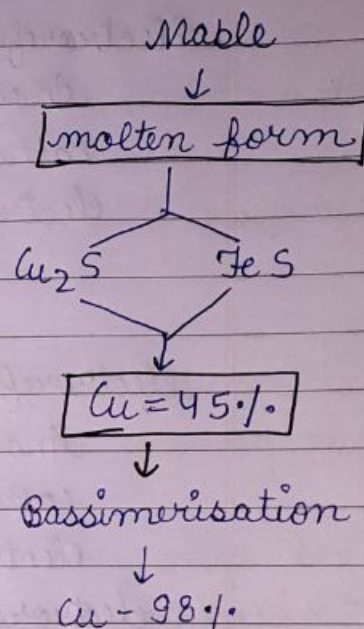 Mable
molten form
Cu2S FeS
Cu = 45%
Bassimerisation
Cu - 98%